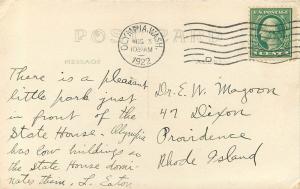 POST CARD
OLYMPIA, WASH.
AUG 3
1922
MESSAGE
There is a pleasant
little park just
in front of the
State House - Olympia
has low buildings so
the State House domi-
nates them. L. Eaton
Dr. E. W. Magoon
47 Dixon
Providence
Rhode Island